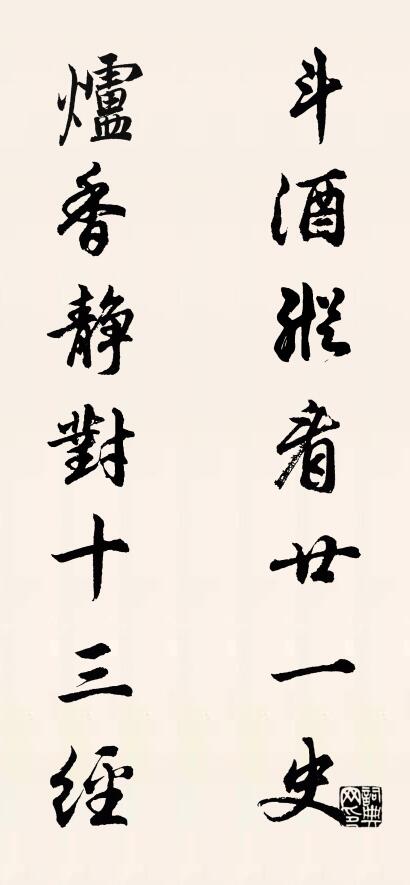 斗酒縱看廿一史
爐香靜對十三經
詞典网印